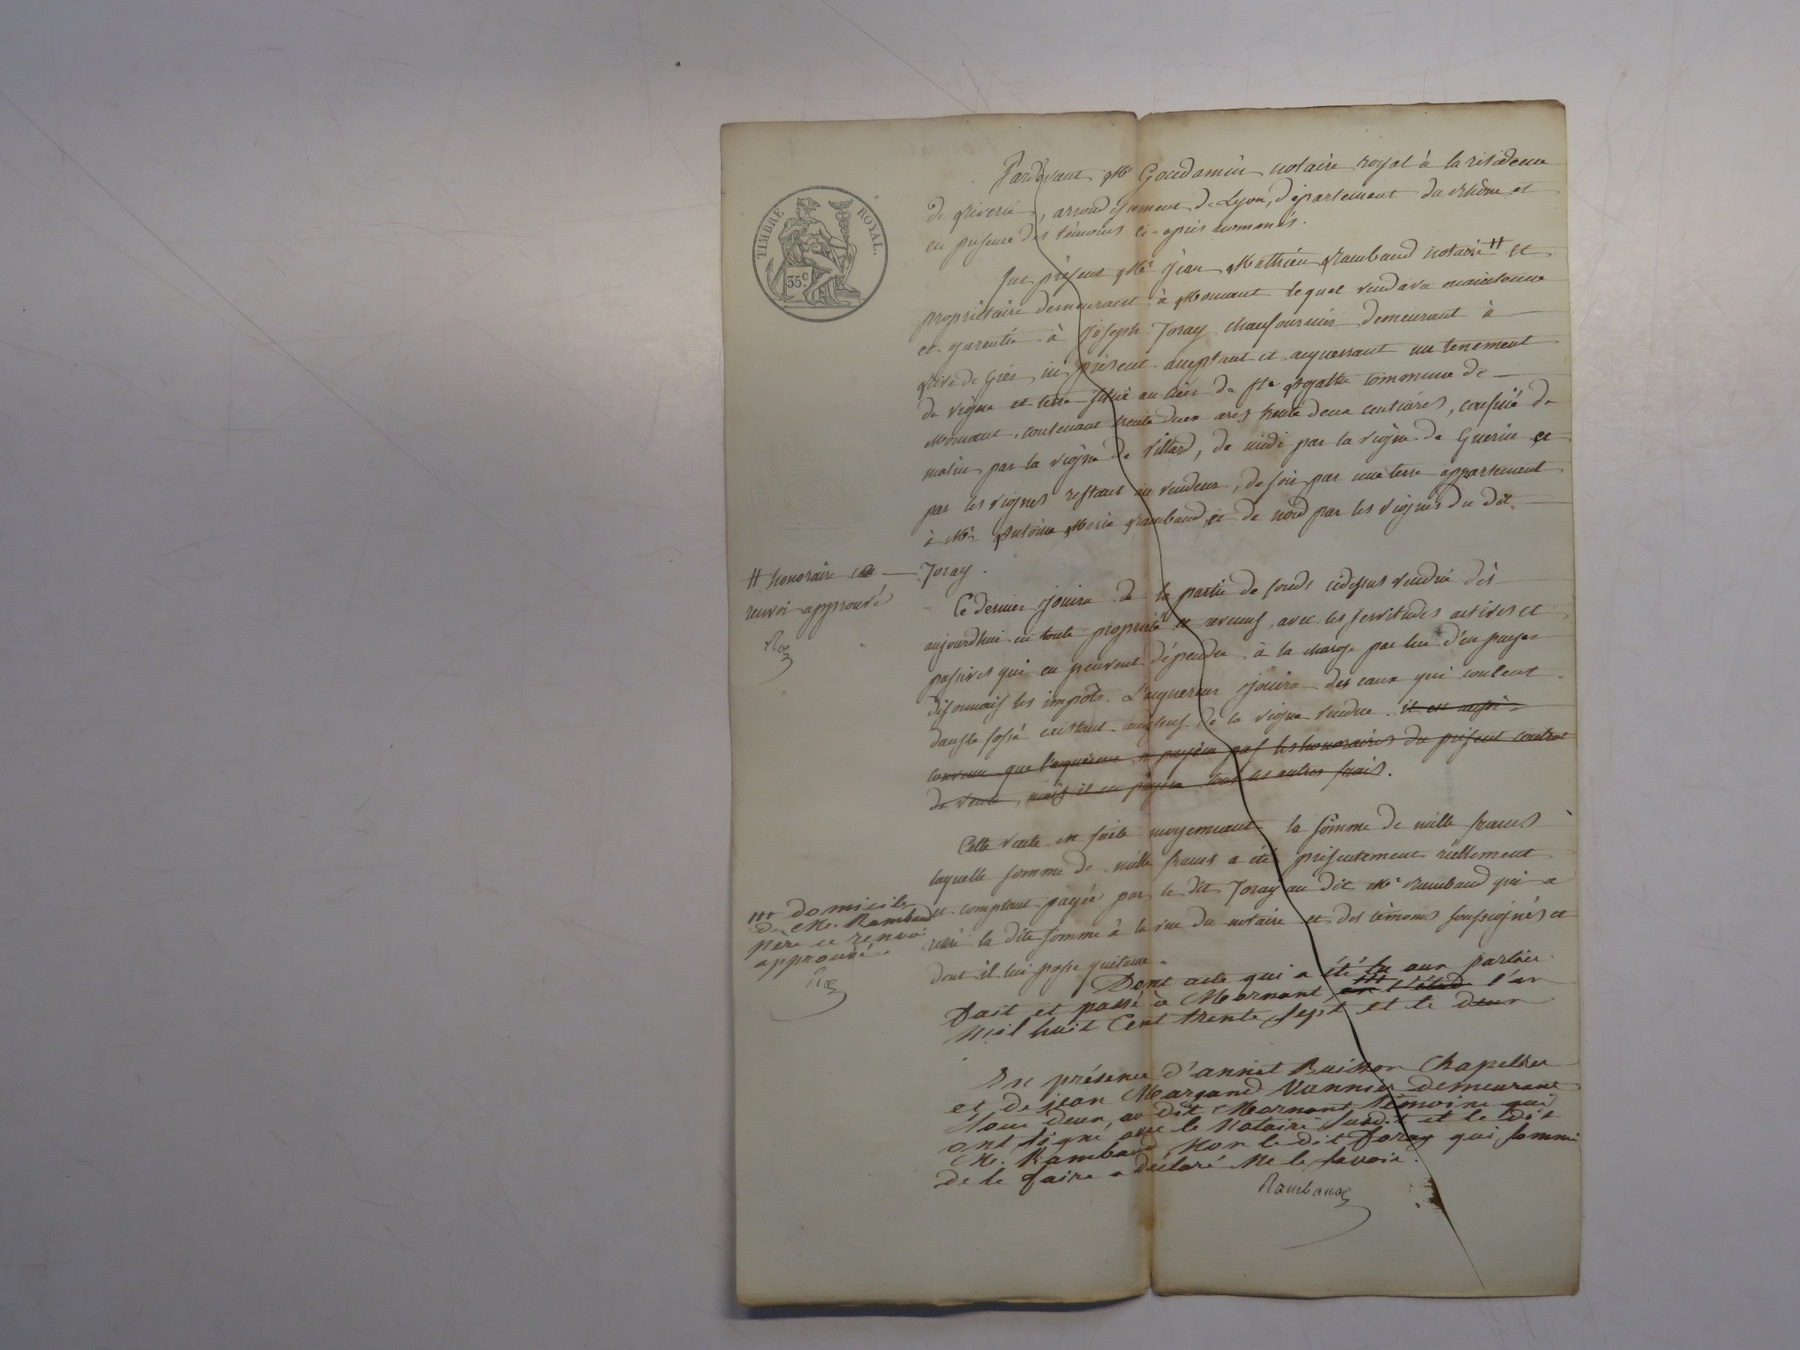 TIMBRE ROYAL
35 c.
Pardevant Me Goudamin notaire royal à la résidence
de Riverie, arrondissement de Lyon, département du Rhône et
en présence des témoins ci-après nommés.
fut présent Mr jean Mathieu Rambaud notaire # et
propriétaire demeurant à Mornant lequel vend avec maintenue
et garentie à Joseph Joray chaufournier demeurant à
Rive de Gier ici présent acceptant et acquerrant un tenement
de vigne et terre situé au lieu de Ste Agathe commune de
Mornant, contenant trente deux ares trente deux centiares, confiné de
matin par la vigne de Villard, de midi par la vigne de Guerin et
par les vignes restant au vendeur, de soir par une terre appartenant
à Mr Antoine Marie Rambaud, et de nord par les vignes du dit
Joray.
# honoraire ce
renvoi approuvé
Ce dernier jouira de la partie de fonds cidessus vendue dès
aujourdhui en toute propriété et revenus, avec les servitudes actives et
passives qui en peuvent dépendre, à la charge par lui d'en payer
désormais les impôts. L'acquereur jouira des eaux qui coulent
dans le fossé existant audessus de la vigne vendue. il est aussi
convenu que l'acquéreur ne payera pas les honoraires du présent contrat
de vente, mais il en payera tous les autres frais.
Cette vente est faite moyennant la somme de mille francs
laquelle somme de mille francs a été présentement réellement
et comptant payée par le dit Joray au dit Mr Rambaud qui a
retiré la dite somme à la vue du notaire et des témoins soussignés et
dont il lui passe quittance.
### domicile
de Me. Rambaud
père ce renvoi
approuvé.
Dont acte qui a été lu aux parties
fait et passé à Mornant en l'étude ### l'an
Mil huit Cent trente sept et le deux
En présence d'annet Buisson Chapellier
et de jean Margand Vannier demeurant
tous deux, au dit Mornant témoins qui
ont signé avec le Notaire susdit et le dit
Me. Rambaud, Non le dit Joray qui, sommé
de le faire a déclaré Ne le savoir.
Rambaud